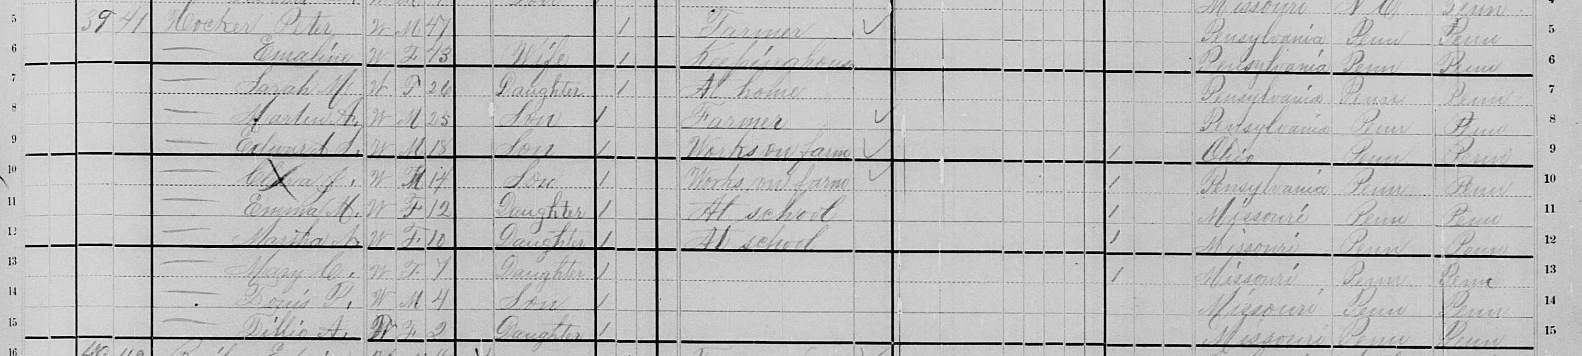 Missouri N C Penn
5 39 41 Hocker Peter, W M 47 1 Farmer ✓ Pensylvania Penn Penn 5
6 — Emaline W F 43 Wife 1 Keepinghous Pensylvania Penn Penn 6
7 — Sarah M. W F 26 Daughter 1 At home Pensylvania Penn Penn 7
8 — Martin A. W M 25 Son 1 Farmer ✓ Pensylvania Penn Penn 8
9 — Edward S. W M 18 Son 1 Works on farm ✓ 1 Ohio Penn Penn 9
10 — J. W M 14 Son 1 Works on farm ✓ 1 Pensylvania Penn Penn 10
11 — Emma M. W F 12 Daughter 1 At school 1 Missouri Penn Penn 11
12 — Martha A. W F 10 Daughter 1 At school 1 Missouri Penn Penn 12
13 — Mary C. W F 7 Daughter 1 1 Missouri Penn Penn 13
14 — P. W M 4 Son 1 Missouri Penn Penn 14
15 — Tillie A. W F 2 Daughter 1 Missouri Penn Penn 15
16